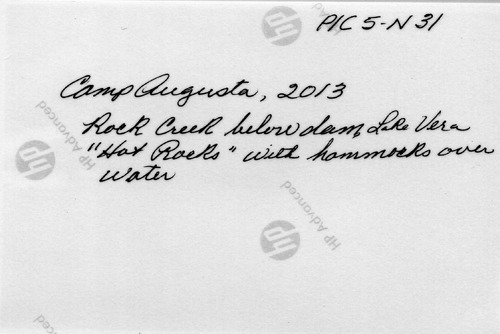 PIC 5-N 31
Camp Augusta, 2013
Rock Creek below dam, Lake Vera
"Hot Rocks" with hammocks over
water
HP Advanced
HP Advanced
HP Advanced
HP Advanced